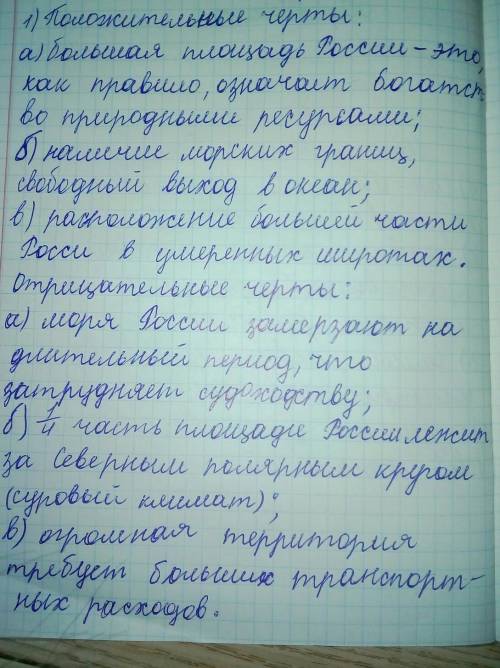 1) Положительные черты:
а) большая площадь России – это,
как правило, означает богатст
во природными ресурсами;
б) наличие морских границ,
свободный выход в океан;
в) расположение большей части
Росси в умеренных широтах.
Отрицательные черты:
а) моря России замерзают на
длительный период, что
затрудняет судоходству;
б) 1/4 часть площади России лежит
за Северным полярным кругом
(суровый климат);
в) огромная территория
требует больших транспорт-
ных расходов.